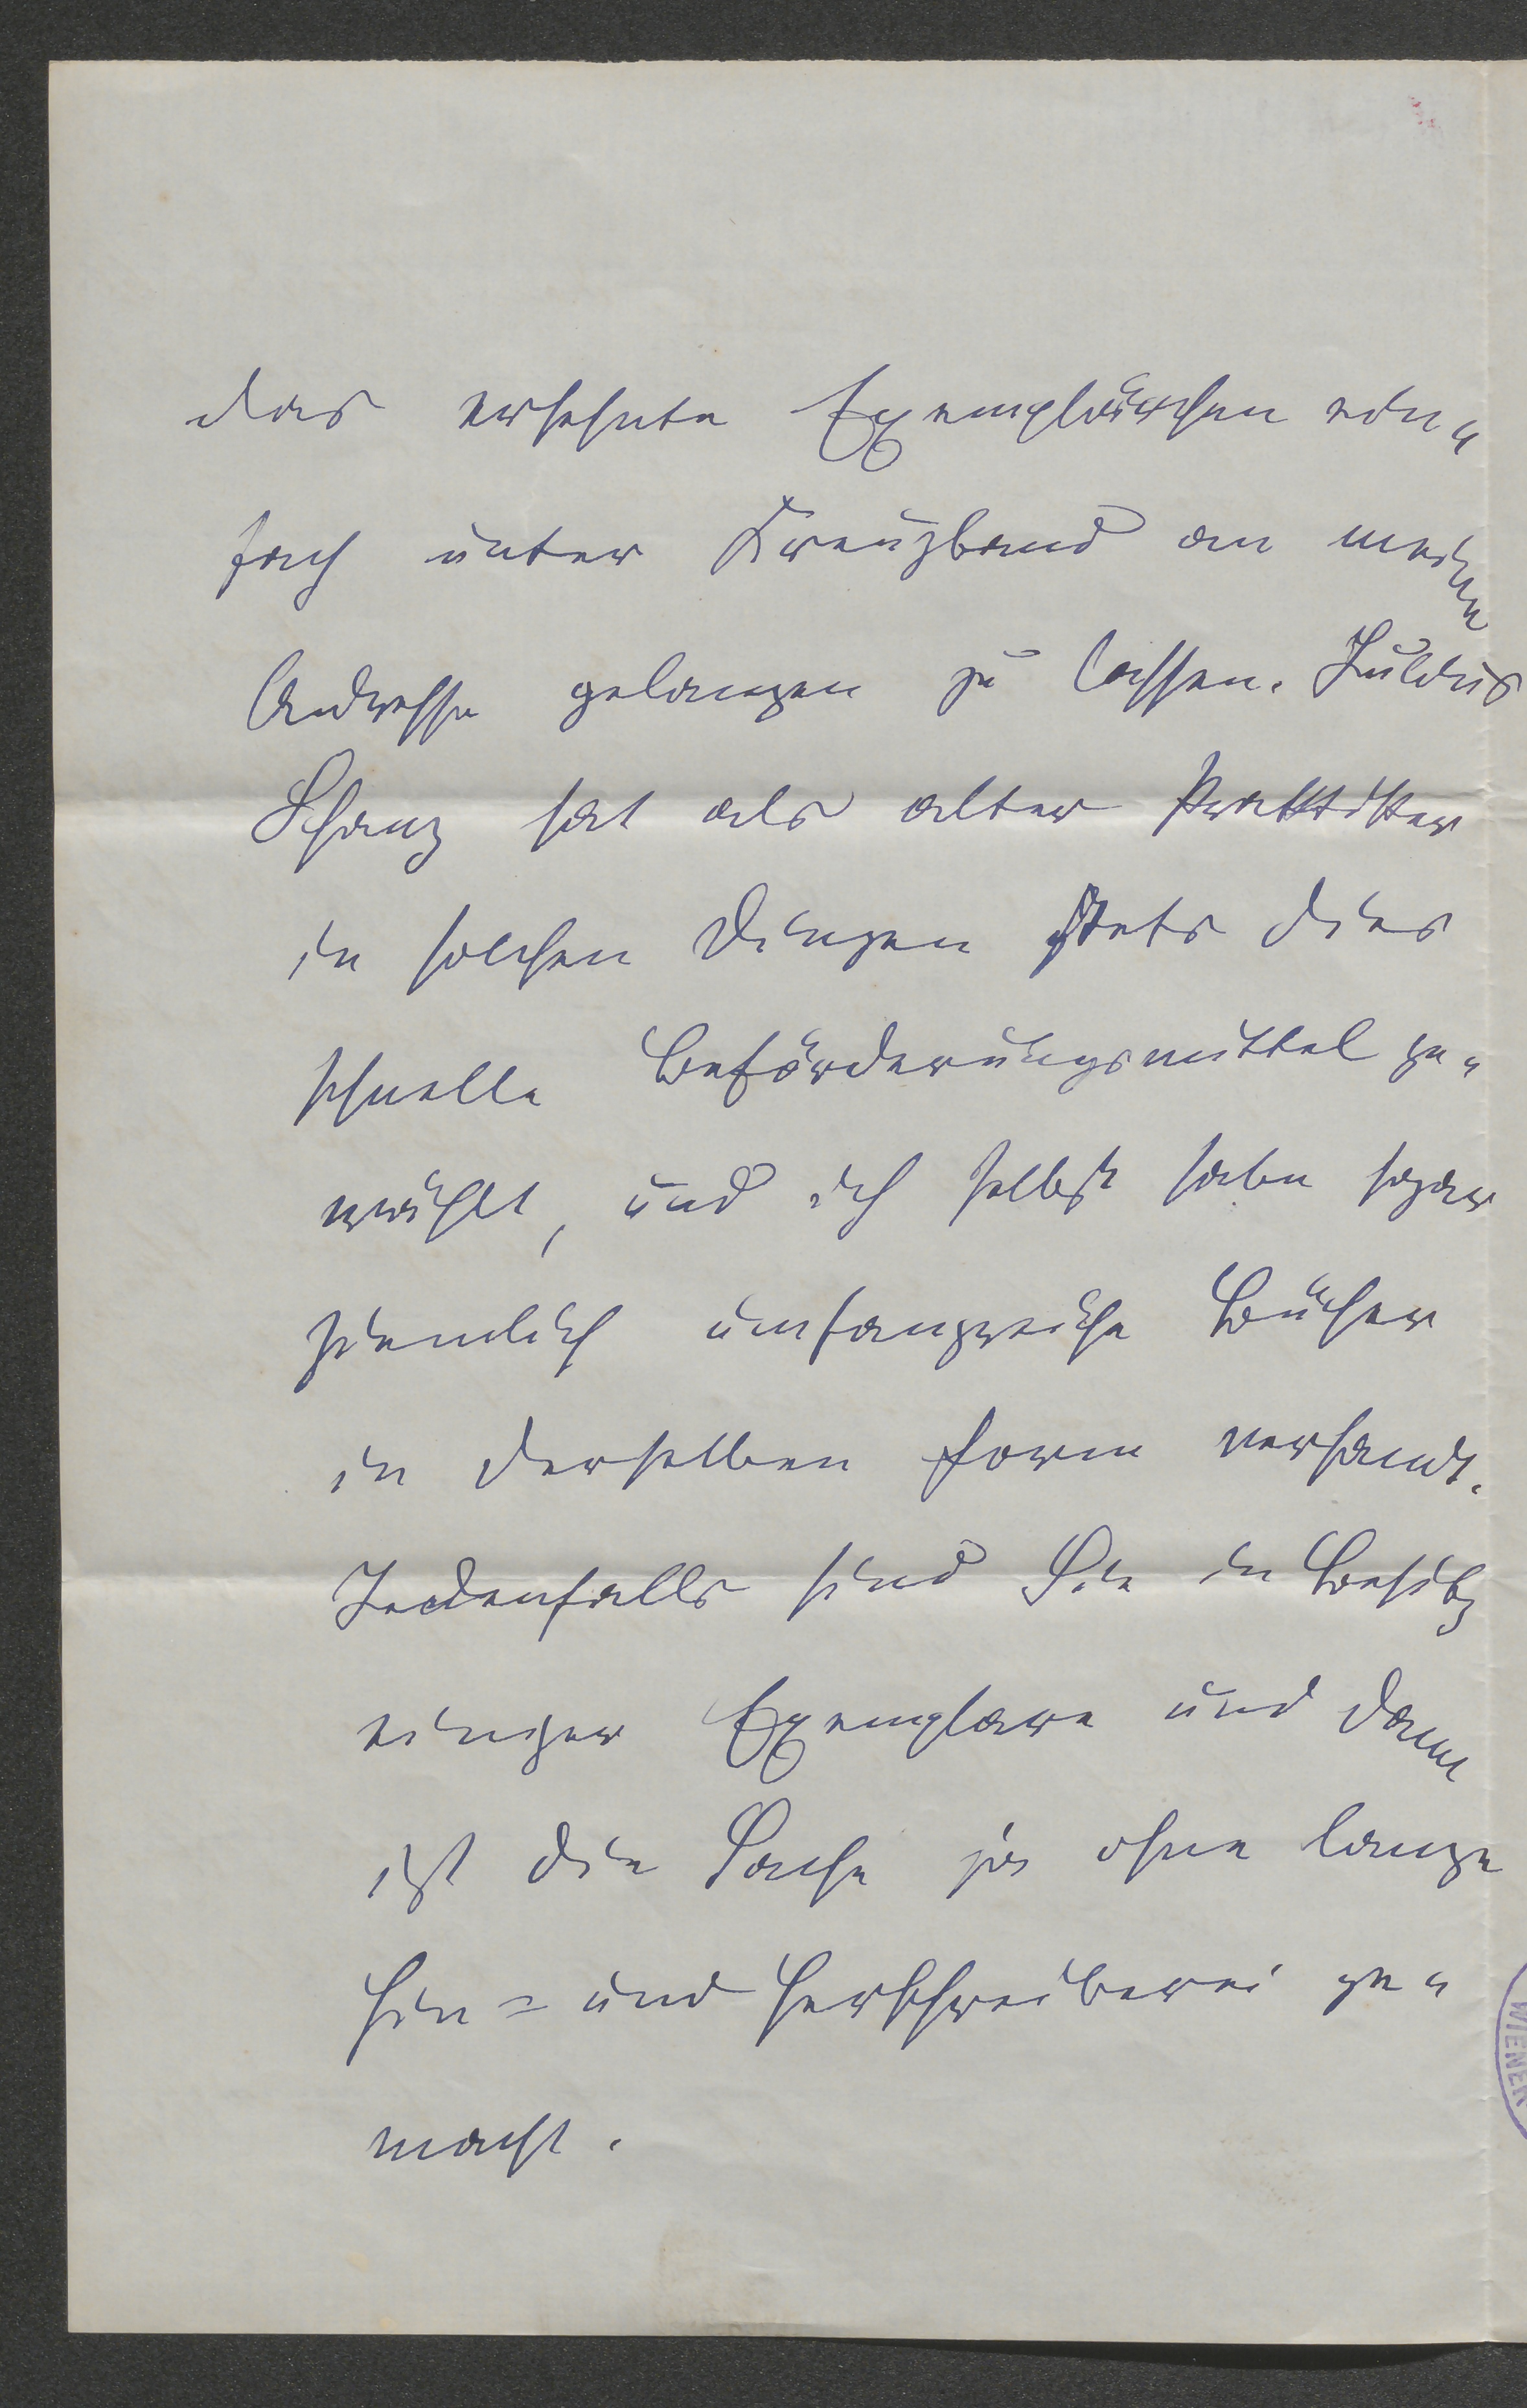 das ersehnte Exemplärchen ein„
fach unter Kreuzband an meine
Adresse gelangen zu lassen. Julius
Schanz hat als alter Praktiker
in solchen Dingen stets dies
schnelle Beförderungsmittel ge„
wählt, und ich selbst habe sogar
ziemlich umfangreiche Bücher
in derselben Form versandt.
Jedenfalls sind Sie in Besitz
einiger Exemplare und dann
ist die Sache ja ohne lange
Hin= und Herschreiberei ge„
macht.
WIENER